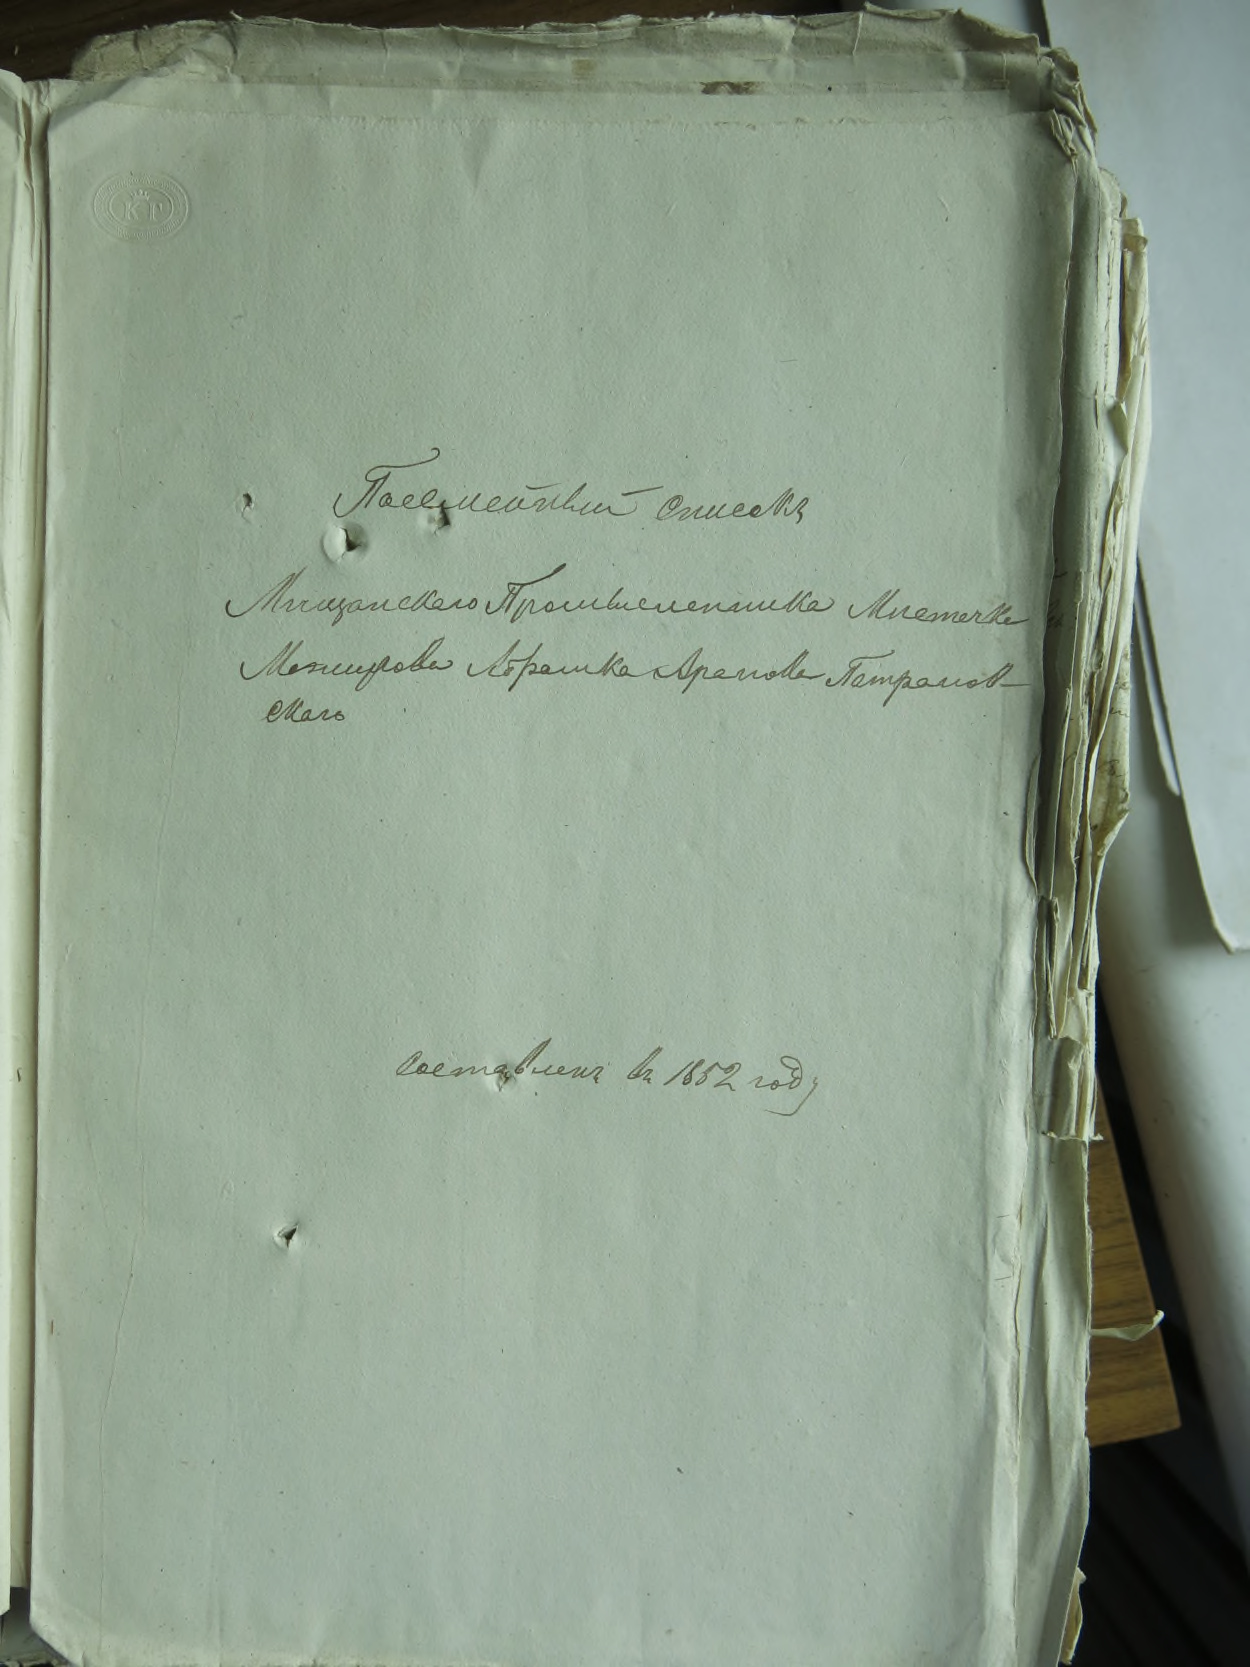 КГ
Посемейный списокъ
Мещанскаго Промышленника Местечка
Межирова Абрашка Арапова Патранов-
скаго
составленъ въ 1852 году